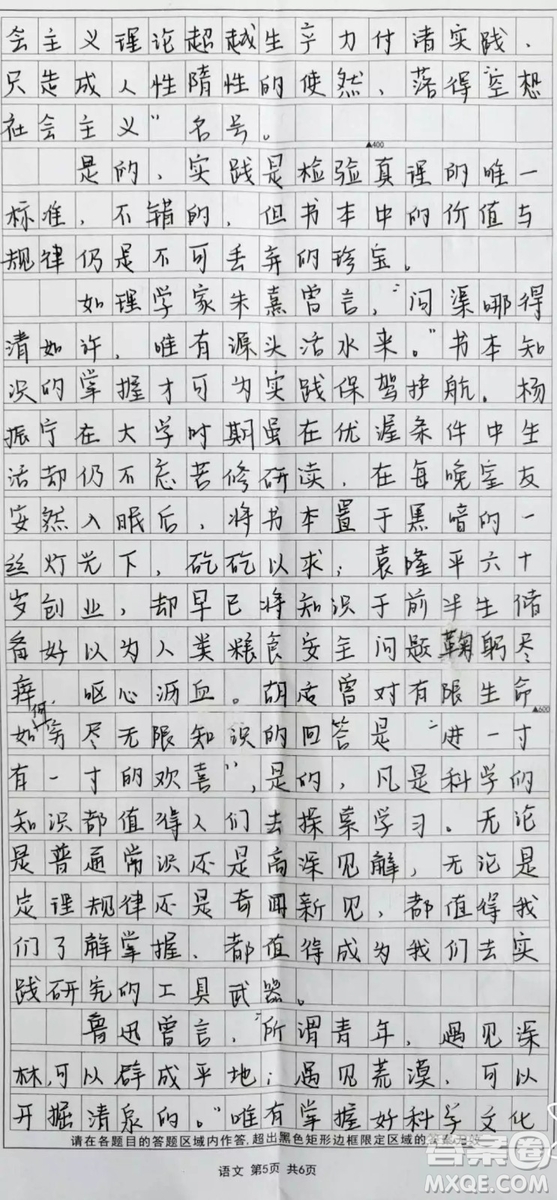 会主义理论超越生产力付诸实践，
只造成人性惰性的使然，落得空想
社会主义”名号。
▲400
是的，实践是检验真理的唯一
标准，不错的，但书本中的价值与
规律仍是不可丢弃的珍宝。
如理学家朱熹曾言，“问渠哪得
清如许，唯有源头活水来。”书本知
识的掌握才可为实践保驾护航。杨
振宁在大学时期虽在优渥条件中生
活却仍不忘苦修研读，在每晚室友
安然入眠后，将书本置于黑暗的一
丝灯光下，矻矻以求；袁隆平六十
岁创业，却早已将知识于前半生储
备好以为人类粮食安全问题鞠躬尽
瘁，呕心沥血。胡适曾对有限生命
▲600
如何穷尽无限知识的回答是“进一寸
有一寸的欢喜”，是的，凡是科学的
知识都值得人们去探索学习。无论
是普通常识还是高深见解，无论是
定理规律还是奇闻新见，都值得我
们了解掌握，都值得成为我们去实
践研究的工具武器。
鲁迅曾言，“所谓青年，遇见深
林，可以辟成平地；遇见荒漠，可以
开掘清泉的。”唯有掌握好科学文化
请在各题目的答题区域内作答，超出黑色矩形边框限定区域的
语文 第5页 共6页
答案圈
MXQE.COM